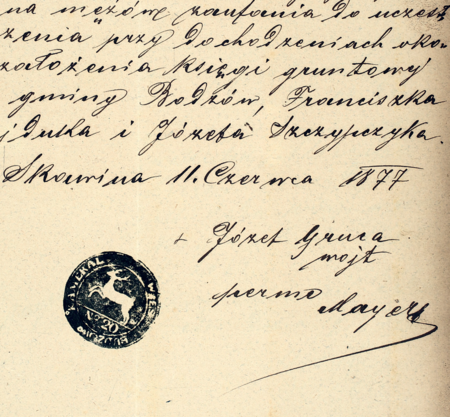 na mężów zaufania do uczest
zenia przy dochodzeniach oko-
założenia księgi gruntowej
gminy Bodzów, Franciszka
jdutka i Józefa Szczypczyka.
Skawina 11. Czerwca 1877
+ Józef Gruca
wójt
Mayer
No 20